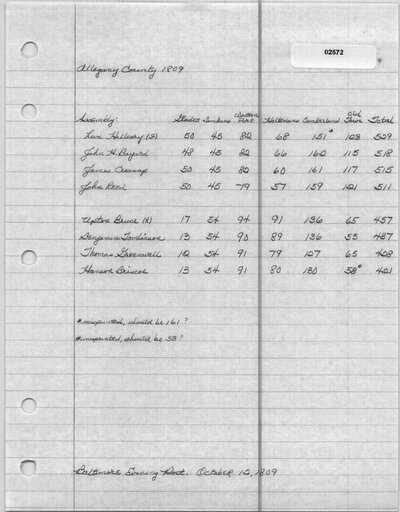 02572
*
Allegany County 1809
Assembly: Glades Simkins Western Port Cumberland Old Town Total
Levi Hilleary (F) 50 45 82 68 151* 103 509
John H. Bayard 48 45 82 66 162 115 518
James Cresap 50 45 82 60 161 117 515
John Reed 50 45 79 57 159 121 511
Upton Bruce (R) 17 54 94 91 136 65 457
Benjamin Tomlinson 13 54 90 89 136 55 437
Thomas Greenwell 12 54 91 79 127 65 428
Hanson Briscoe 13 54 91 80 130 58* 421
*misprinted, should be 161?
*misprinted, should be 53?
Baltimore Evening Post. October 12, 1809